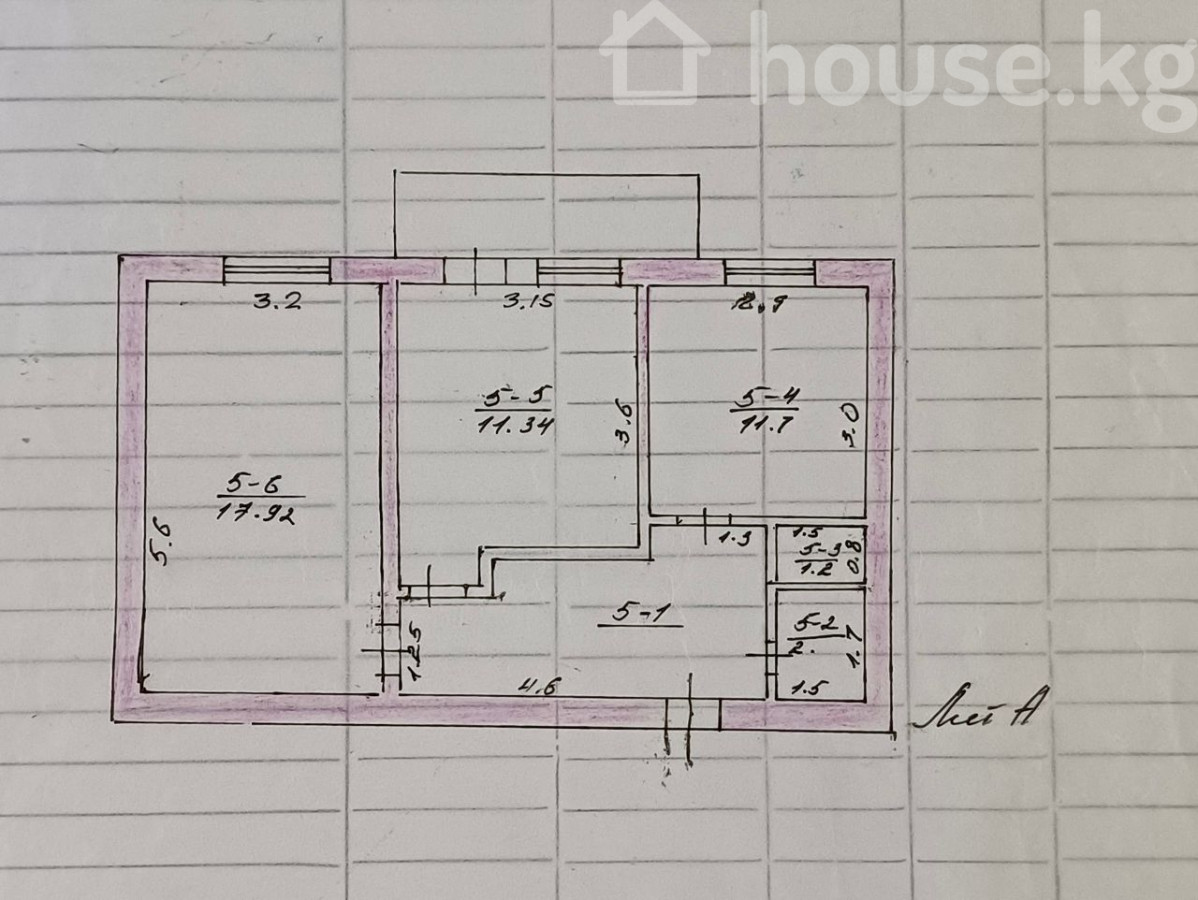 house.kg
3.2
3.15
2.9
5-5
11.34
3.6
5-4
11.7
3.0
5-6
17.92
5.6
1.3
1.5
5-3
1.2
0.8
5-1
5-2
2.
1.7
1.25
4.6
1.5